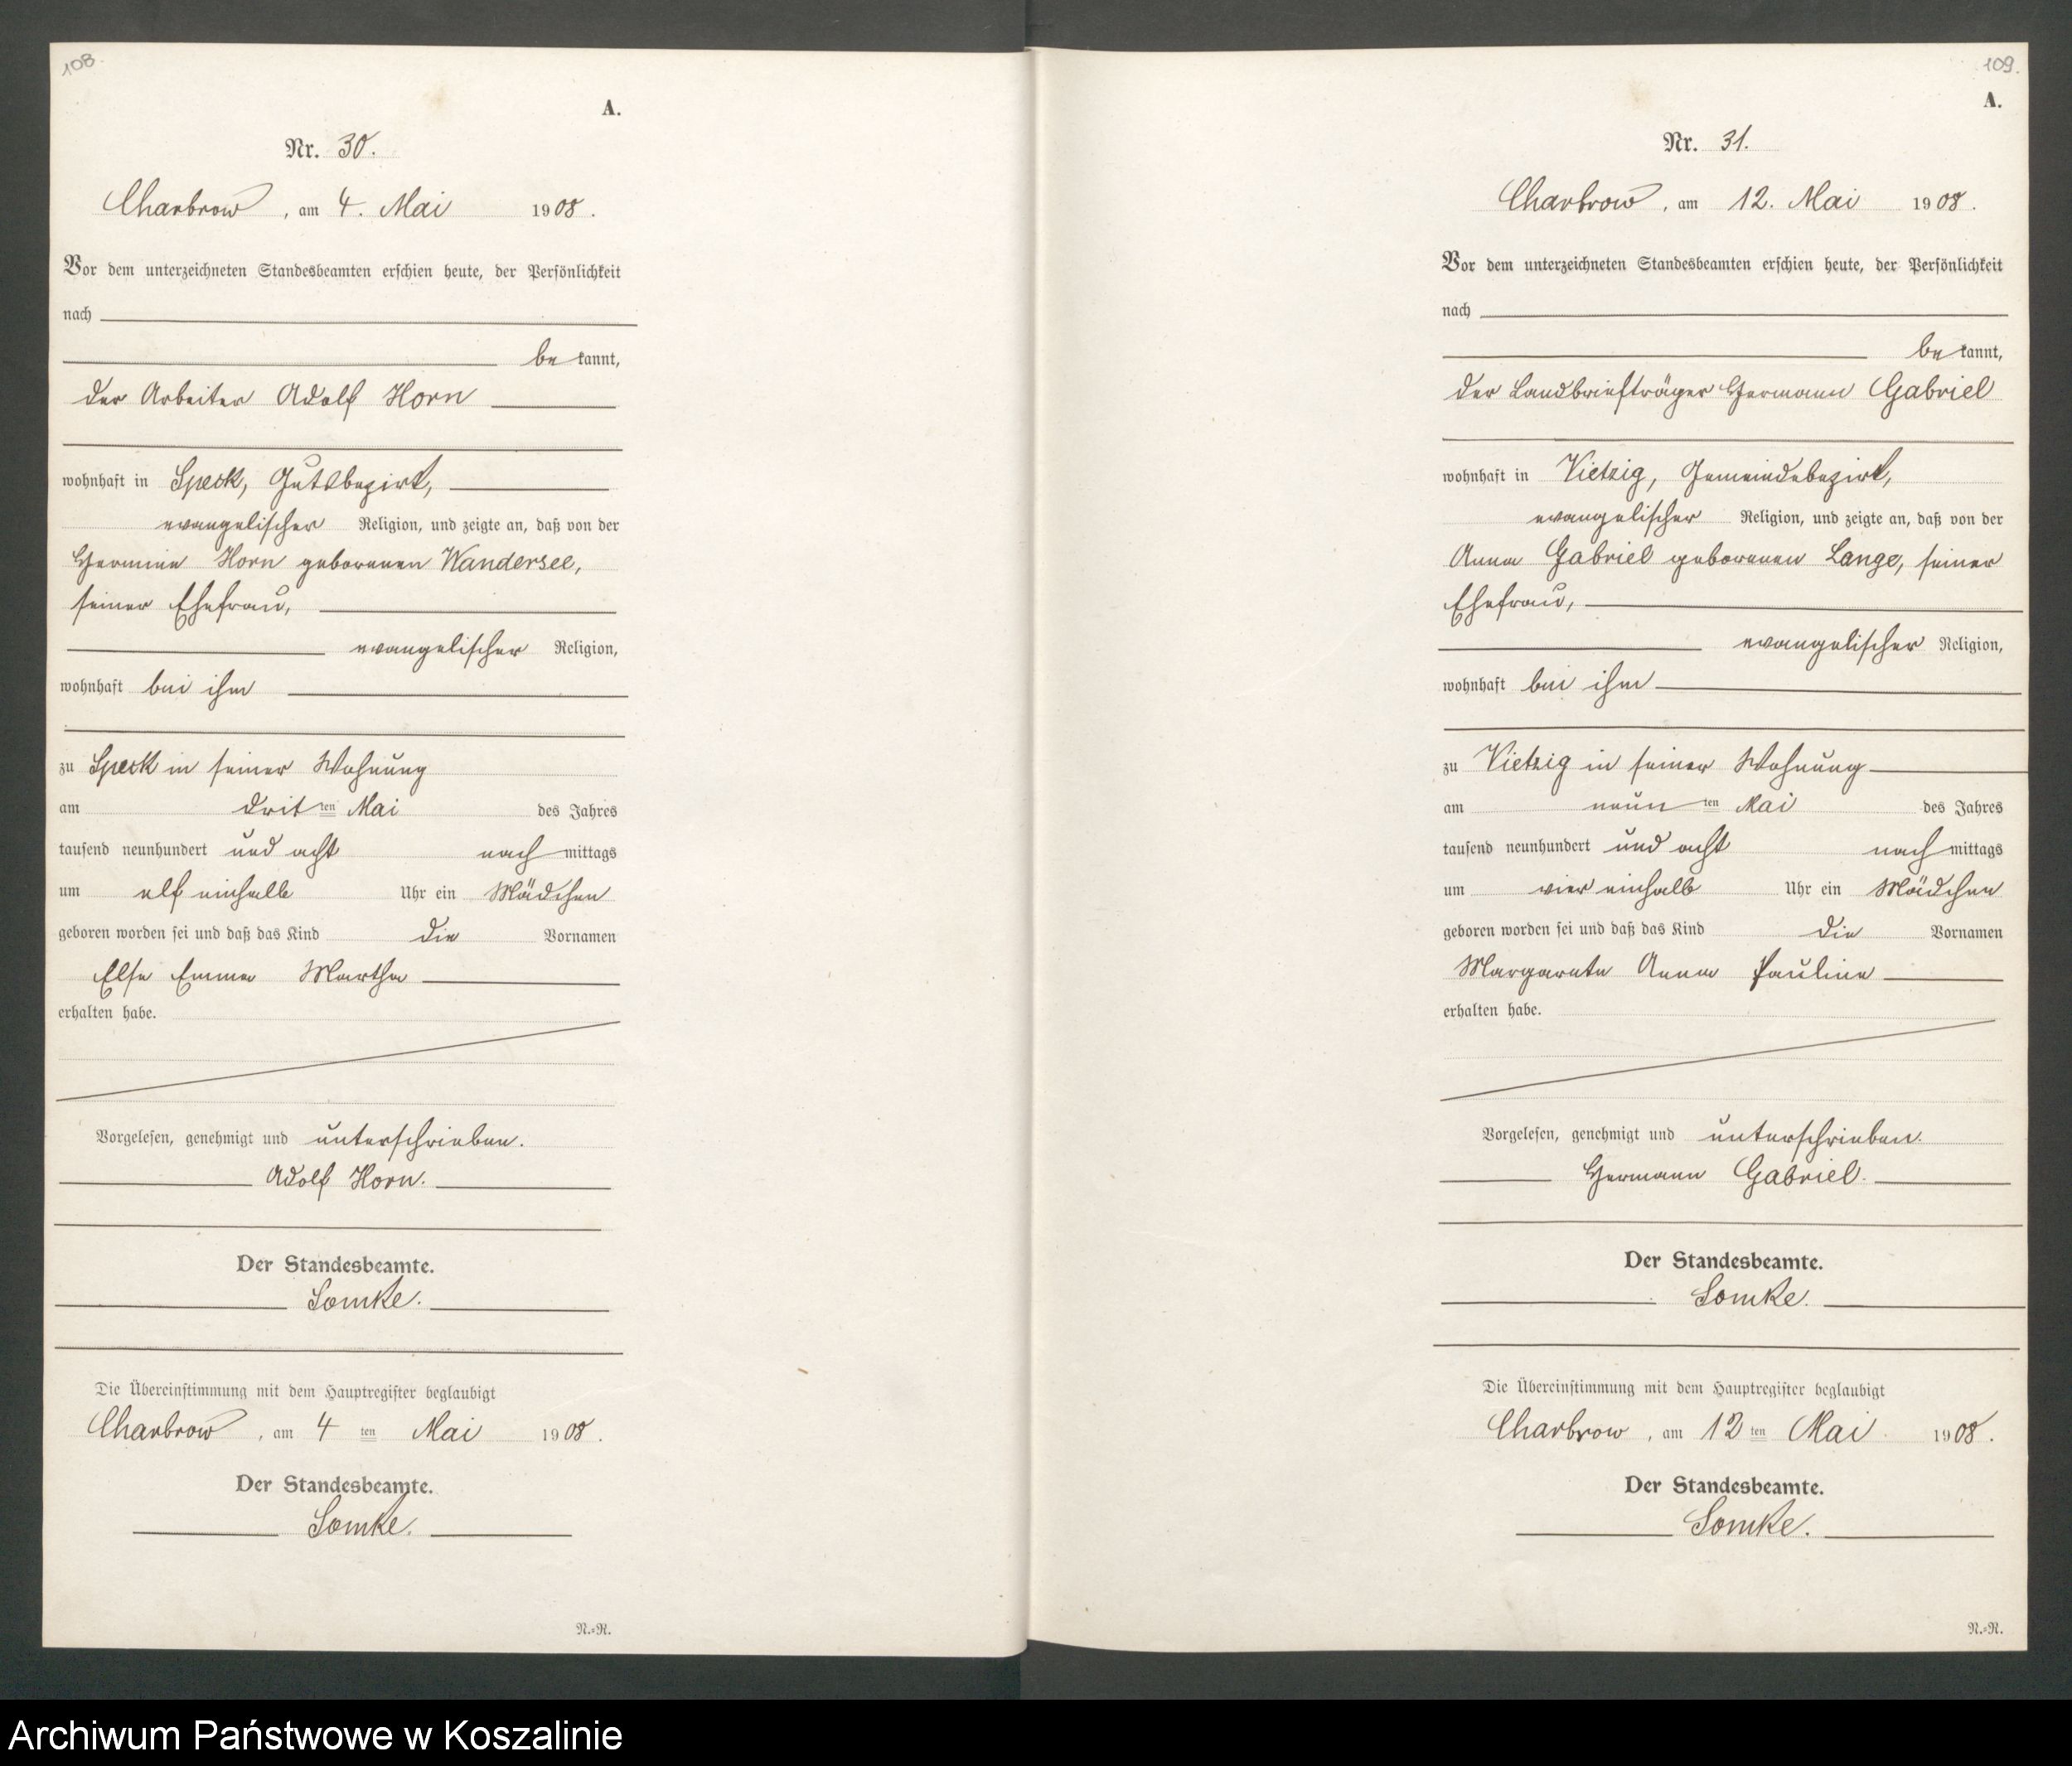 108.
A.
Nr. 30.
Charbrow, am 4. Mai 1908.
Vor dem unterzeichneten Standesbeamten erschien heute, der Persönlichkeit
nach
be kannt,
der Arbeiter Adolf Horn
wohnhaft in Speck, Gutsbezirk,
evangelischer Religion, und zeigte an, daß von der
Hermine Horn geborenen Wandersee,
seiner Ehefrau,
evangelischer Religion,
wohnhaft bei ihm
zu Speck in seiner Wohnung
am drit ten Mai des Jahres
tausend neunhundert und acht nach mittags
um elf einhalb Uhr ein Mädchen
geboren worden sei und daß das Kind die Vornamen
Else Emma Martha
erhalten habe.
Vorgelesen, genehmigt und unterschrieben.
Adolf Horn.
Der Standesbeamte.
Lomke.
Die Übereinstimmung mit dem Hauptregister beglaubigt
Charbrow, am 4 ten Mai 1908.
Der Standesbeamte.
Lomke.
N.=R.
109.
A.
Nr. 31.
Charbrow, am 12. Mai 1908.
Vor dem unterzeichneten Standesbeamten erschien heute, der Persönlichkeit
nach
be kannt,
der Landbriefträger Hermann Gabriel
wohnhaft in Vietzig, Gemeindebezirk,
evangelischer Religion, und zeigte an, daß von der
Anna Gabriel geborenen Lange, seiner
Ehefrau,
evangelischer Religion,
wohnhaft bei ihm
zu Vietzig in seiner Wohnung
am neun ten Mai des Jahres
tausend neunhundert und acht nach mittags
um vier einhalb Uhr ein Mädchen
geboren worden sei und daß das Kind die Vornamen
Margarete Anna Pauline
erhalten habe.
Vorgelesen, genehmigt und unterschrieben.
Hermann Gabriel.
Der Standesbeamte.
Lomke.
Die Übereinstimmung mit dem Hauptregister beglaubigt
Charbrow, am 12 ten Mai 1908.
Der Standesbeamte.
Lomke.
N.=R.
Archiwum Państwowe w Koszalinie